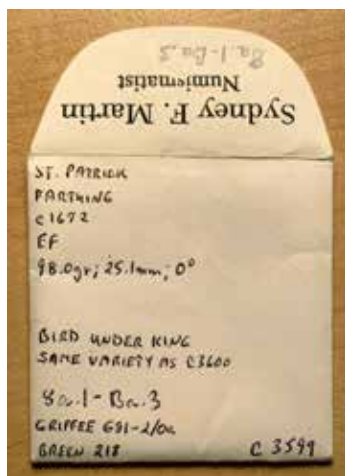 8a.1-Ba.3
Numismatist
Sydney F. Martin
ST. PATRICK
FARTHING
c1672
EF
98.0gr; 25.1mm; 0°
BIRD UNDER KING
SAME VARIETY AS C3600
8a.1-Ba.3
GRIFFEE G91-2/Oa
GREEN 218
C 3599